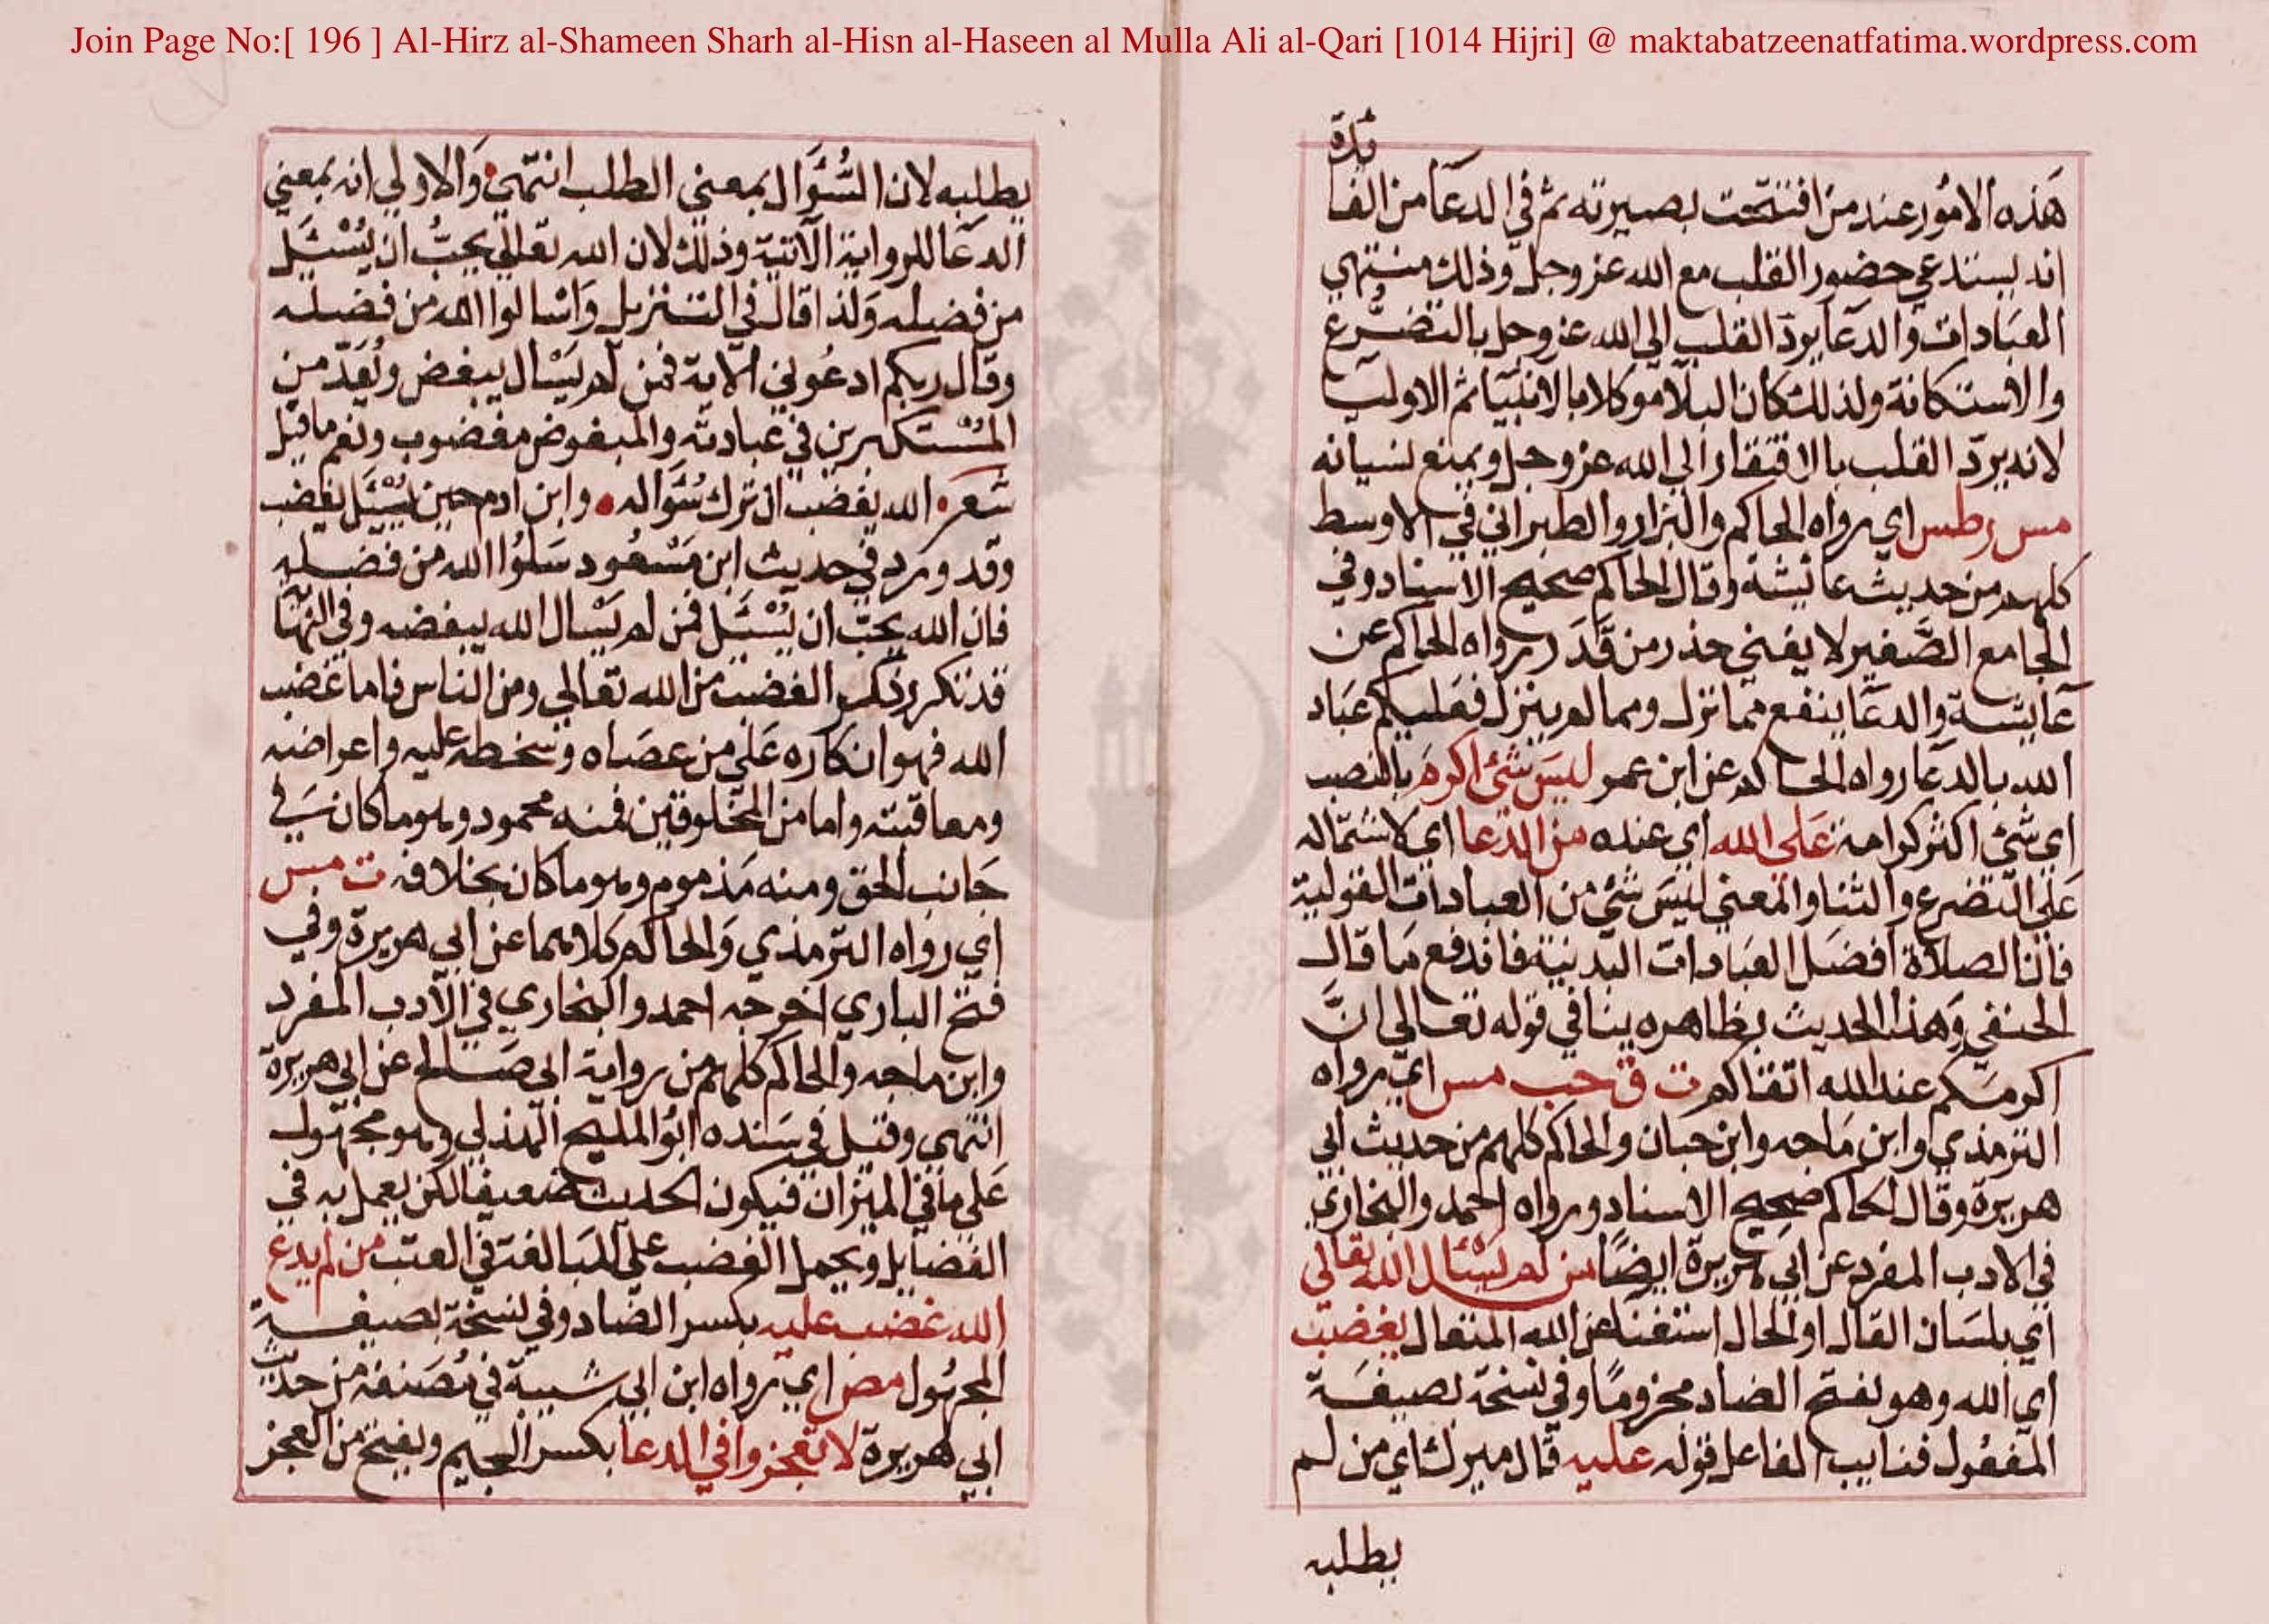 Join Page No:[ 196 ] Al-Hirz al-Shameen Sharh al-Hisn al-Haseen al Mulla Ali al-Qari [1014 Hijri] @ maktabatzeenatfatima.wordpress.com
ئدة
هَذه الامُور عند من افتتحت بصيرته ثم في الدعَا من الفَا
انه يستدعي حضور القلب مع الله عز وجل وذلك منتهي
العبَادات والدعَا يردّ القلب الي الله عز وجل بالتضرُّع
والاستكانة ولذلك كان البلَا موكلا بالانبيَا ثم الاوليَا
لانه يردّ القلب بالافتقار الي الله عز وجل ويمنع نسيانه
مس ر طس اي رواه الحاكم والبزار والطبراني في الاوسط
كلهم من حديث عائشة وقال الحاكم صحيح الاسناد وفي
الجامع الصَّغير لا يغني حذر من قَدَر رواه الحاكم عن
عَايشة والدعَا ينفع مما نزل ومما لم ينزل فعَليكم عبَاد
الله بالدعَا رواه الحاكم عن ابن عمر ليسَ شئ اكرمَ بالنصب
اي شئ اكثر كرامة عَلي الله اي عنده من الدّعا اي لاشتماله
عَلي التضرع والثنا والمعني ليسَ شئ من العبادات القولية
فان الصلاة افضَل العبَادات البدنية فاندفع مَا قال
الحنفي وَهذا الحديث بظاهره ينافي قوله تعالي انَّ
اكرمَكم عند الله اتقاكم ت ق حب مس اي رواه
الترمذي وابن مَاجه وابن حبان والحاكم كلهم من حديث ابي
هريرة وقال الحاكم صحيح الاسناد ورواه احمد والبخاري
في الادب المفرد عن ابي هريرة ايضًا من لم يسْئَل الله تعالي
اي بلسَان القال او الحال استغنا عن الله المتعال يغضبْ
اي الله وهو بفتح الضاد مجزومًا وفي نسخة بصيغَة
المفعُول فنايب الفاعل قوله عليه قال ميرك اي من لم
يطلبه
يطلبه لان السُّئَوال بمعني الطلب انتهي وَالاولي انه بمعني
الدعَا للرواية الآتية وذلك لان الله تعالي يحبُّ ان يُسْئَل
من فضله وَلذا قال في التنزيل وَاسْالوا الله من فضله
وقال ربكم ادعُوني الآية فمن لم يَسْال يبغض ويُعَدّ من
المُسْتكبرين في عبادته والمبغوض مغضوب ونعم ما قيل
شعر الله يغضب ان تركت سُئَواله وابن ادم حين يُسْئَل يغضب
وقد ورد في حديث ابن مَسْعُود سَلوُا الله من فضله
فان الله يحبّ ان يُسْئَل فمن لم يَسْال الله يبغضه وفي النهَاية
قد تكرر ذكر الغضب من الله تعالي ومن الناس فاما غضب
الله فهو انكاره عَلي من عصَاه وسخطه عليه واعراضه
ومعاقبته واما من المخلوقين فمنه محمود وهو ما كان في
جَانب الحق ومنه مَذموم وهو ما كان بخلافه ت مس
اي رواه الترمذي وَالحاكم كلاهما عن ابي هريرة وفي
فتح الباري اخرجه احمد والبخاري في الآدب المفرد
وابن ماجه والحاكم كلهم من رواية ابي صَالح عن ابي هريرة
انتهي وقيل في سَنده ابُو المليح الهذلي وهو مجهول
عَلي ما في الميزان فيكون الحديث ضعيفا لكن يعمل به في
الفضايل ويحمل الغضب علي المبَالغة في العتب من لم يدع
الله غضب عليه بكسر الضاد وفي نسخة بصيغة
المجهُول مص اي رواه ابن ابي شيبة في مُصَنفه من حديث
ابي هريرة لا تعجزوا في الدعا بكسر الجيم وبفتح من العجز